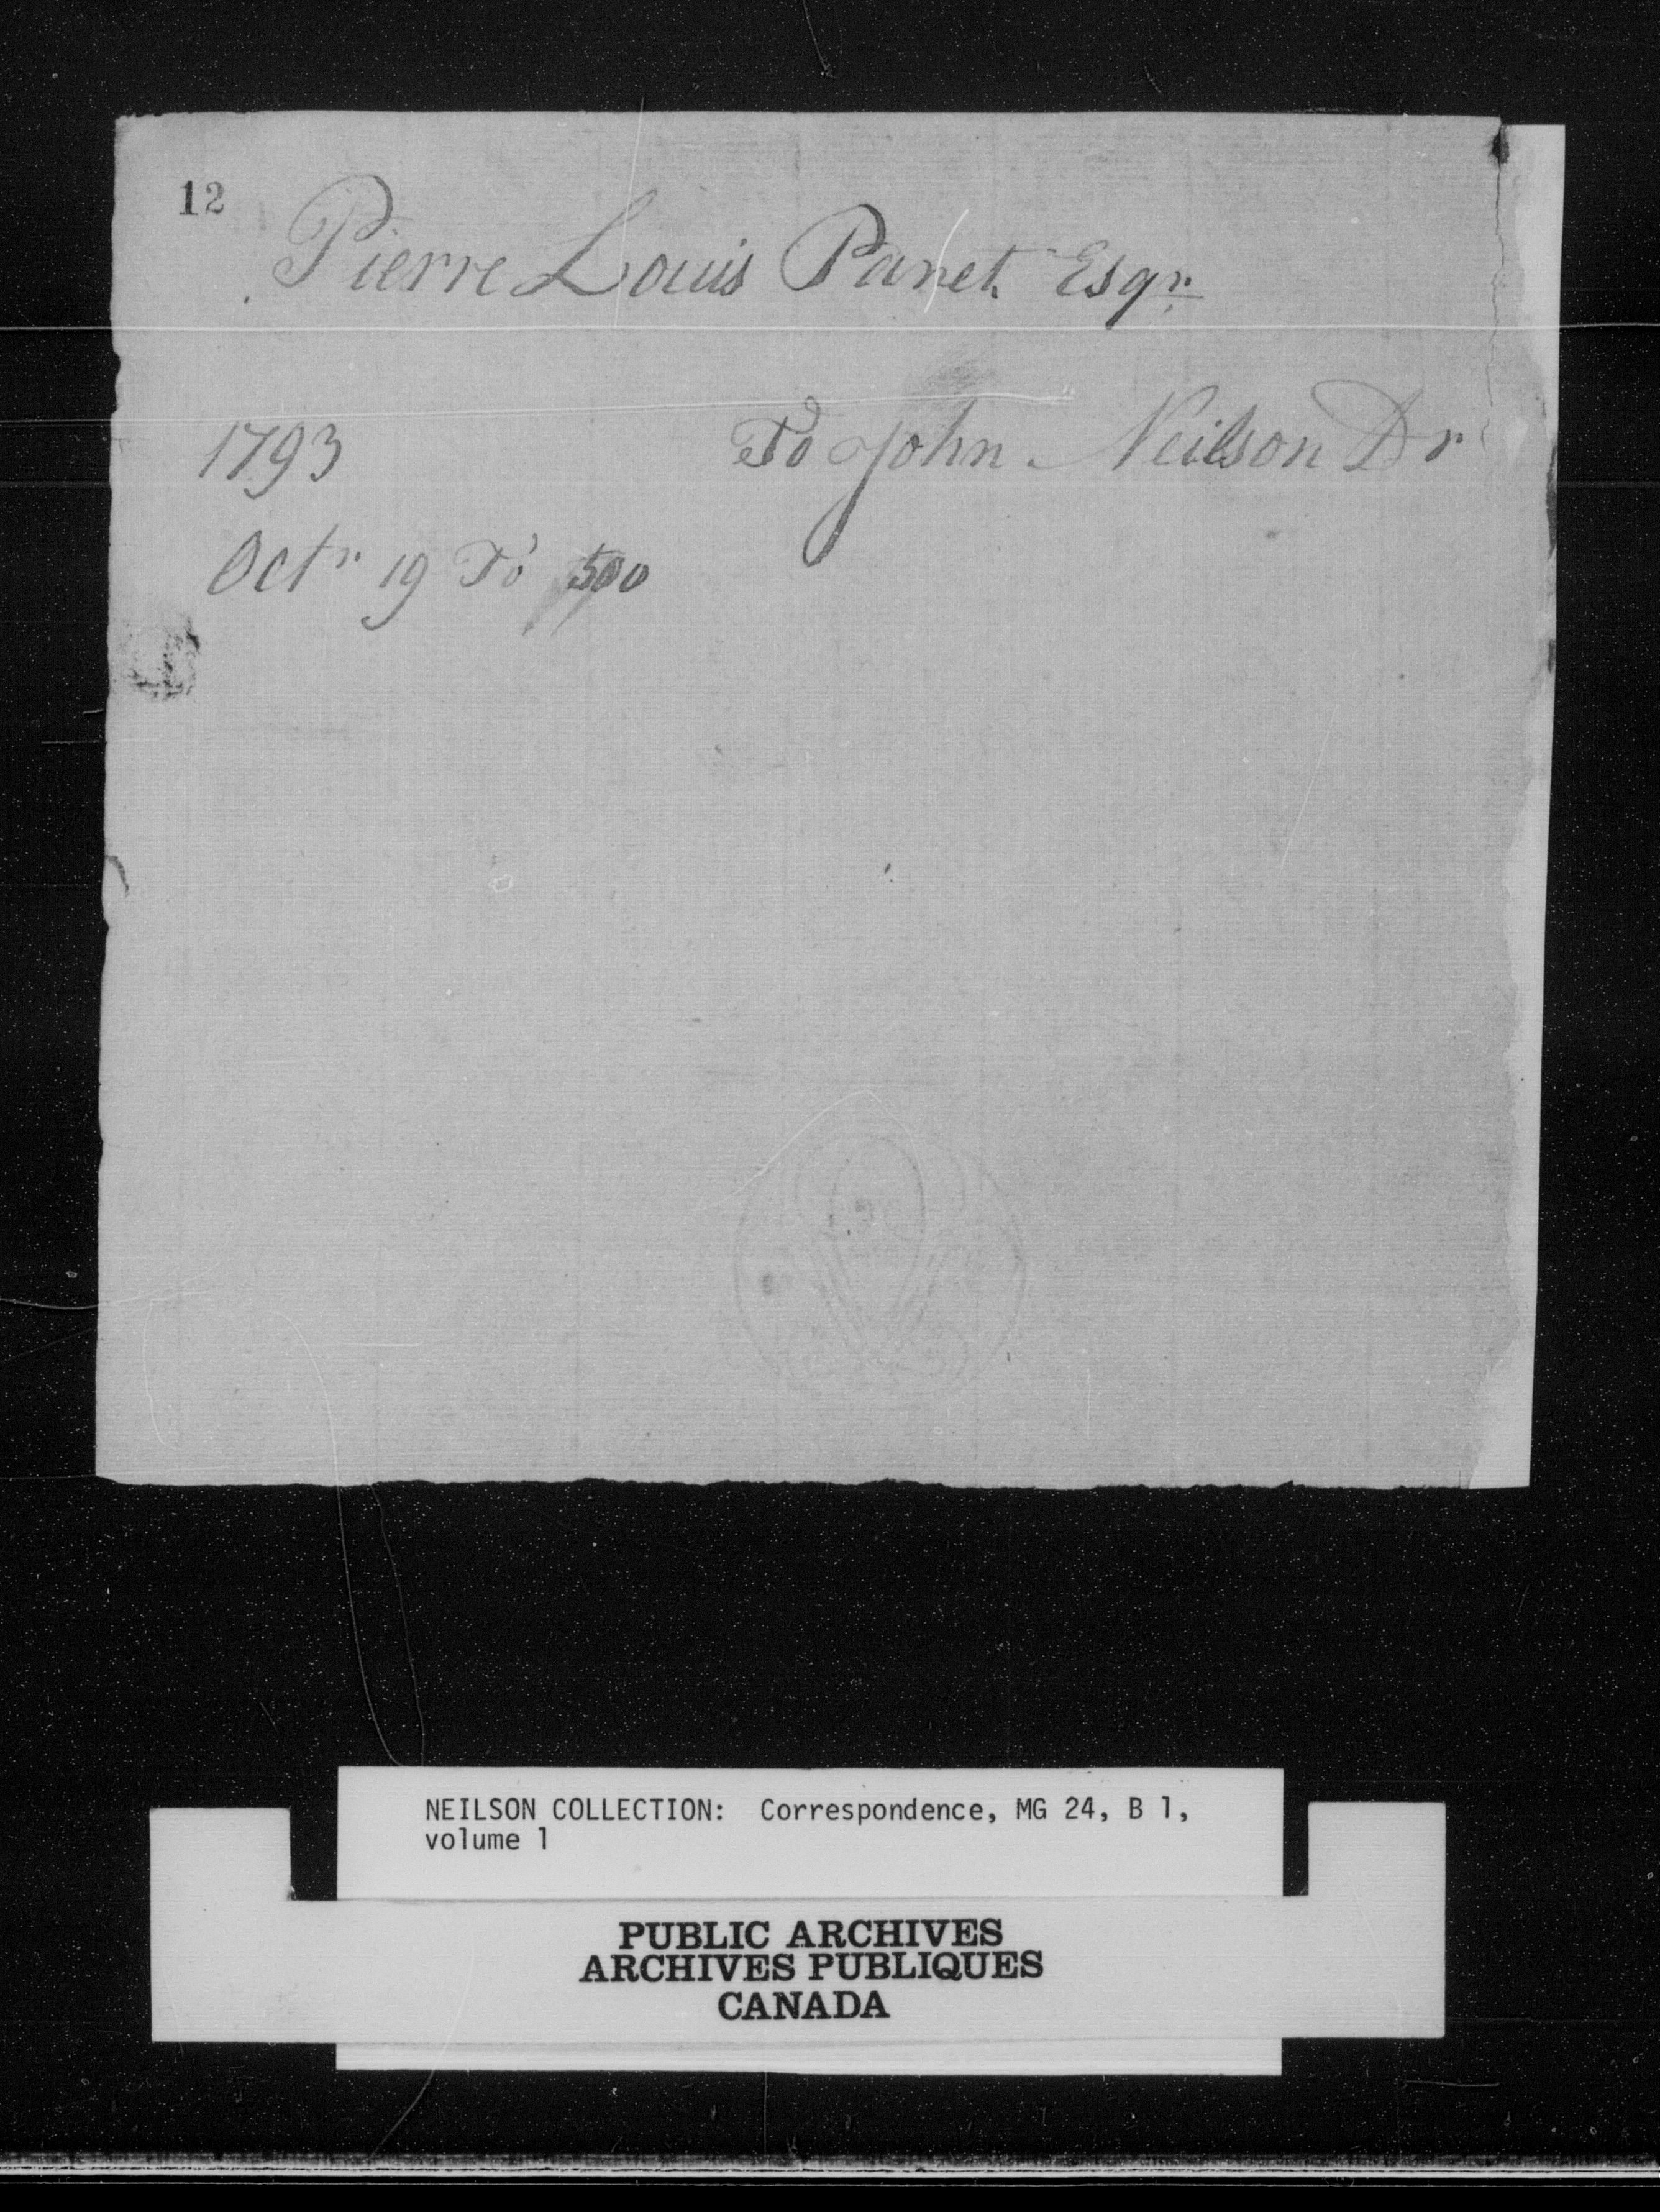 12
Pierre Louis Panet Esqr.
1793 To John Neilson Dr
Octr 19 To 500
NEILSON COLLECTION: Correspondence, MG 24, B 1,
volume 1
PUBLIC ARCHIVES
ARCHIVES PUBLIQUES
CANADA